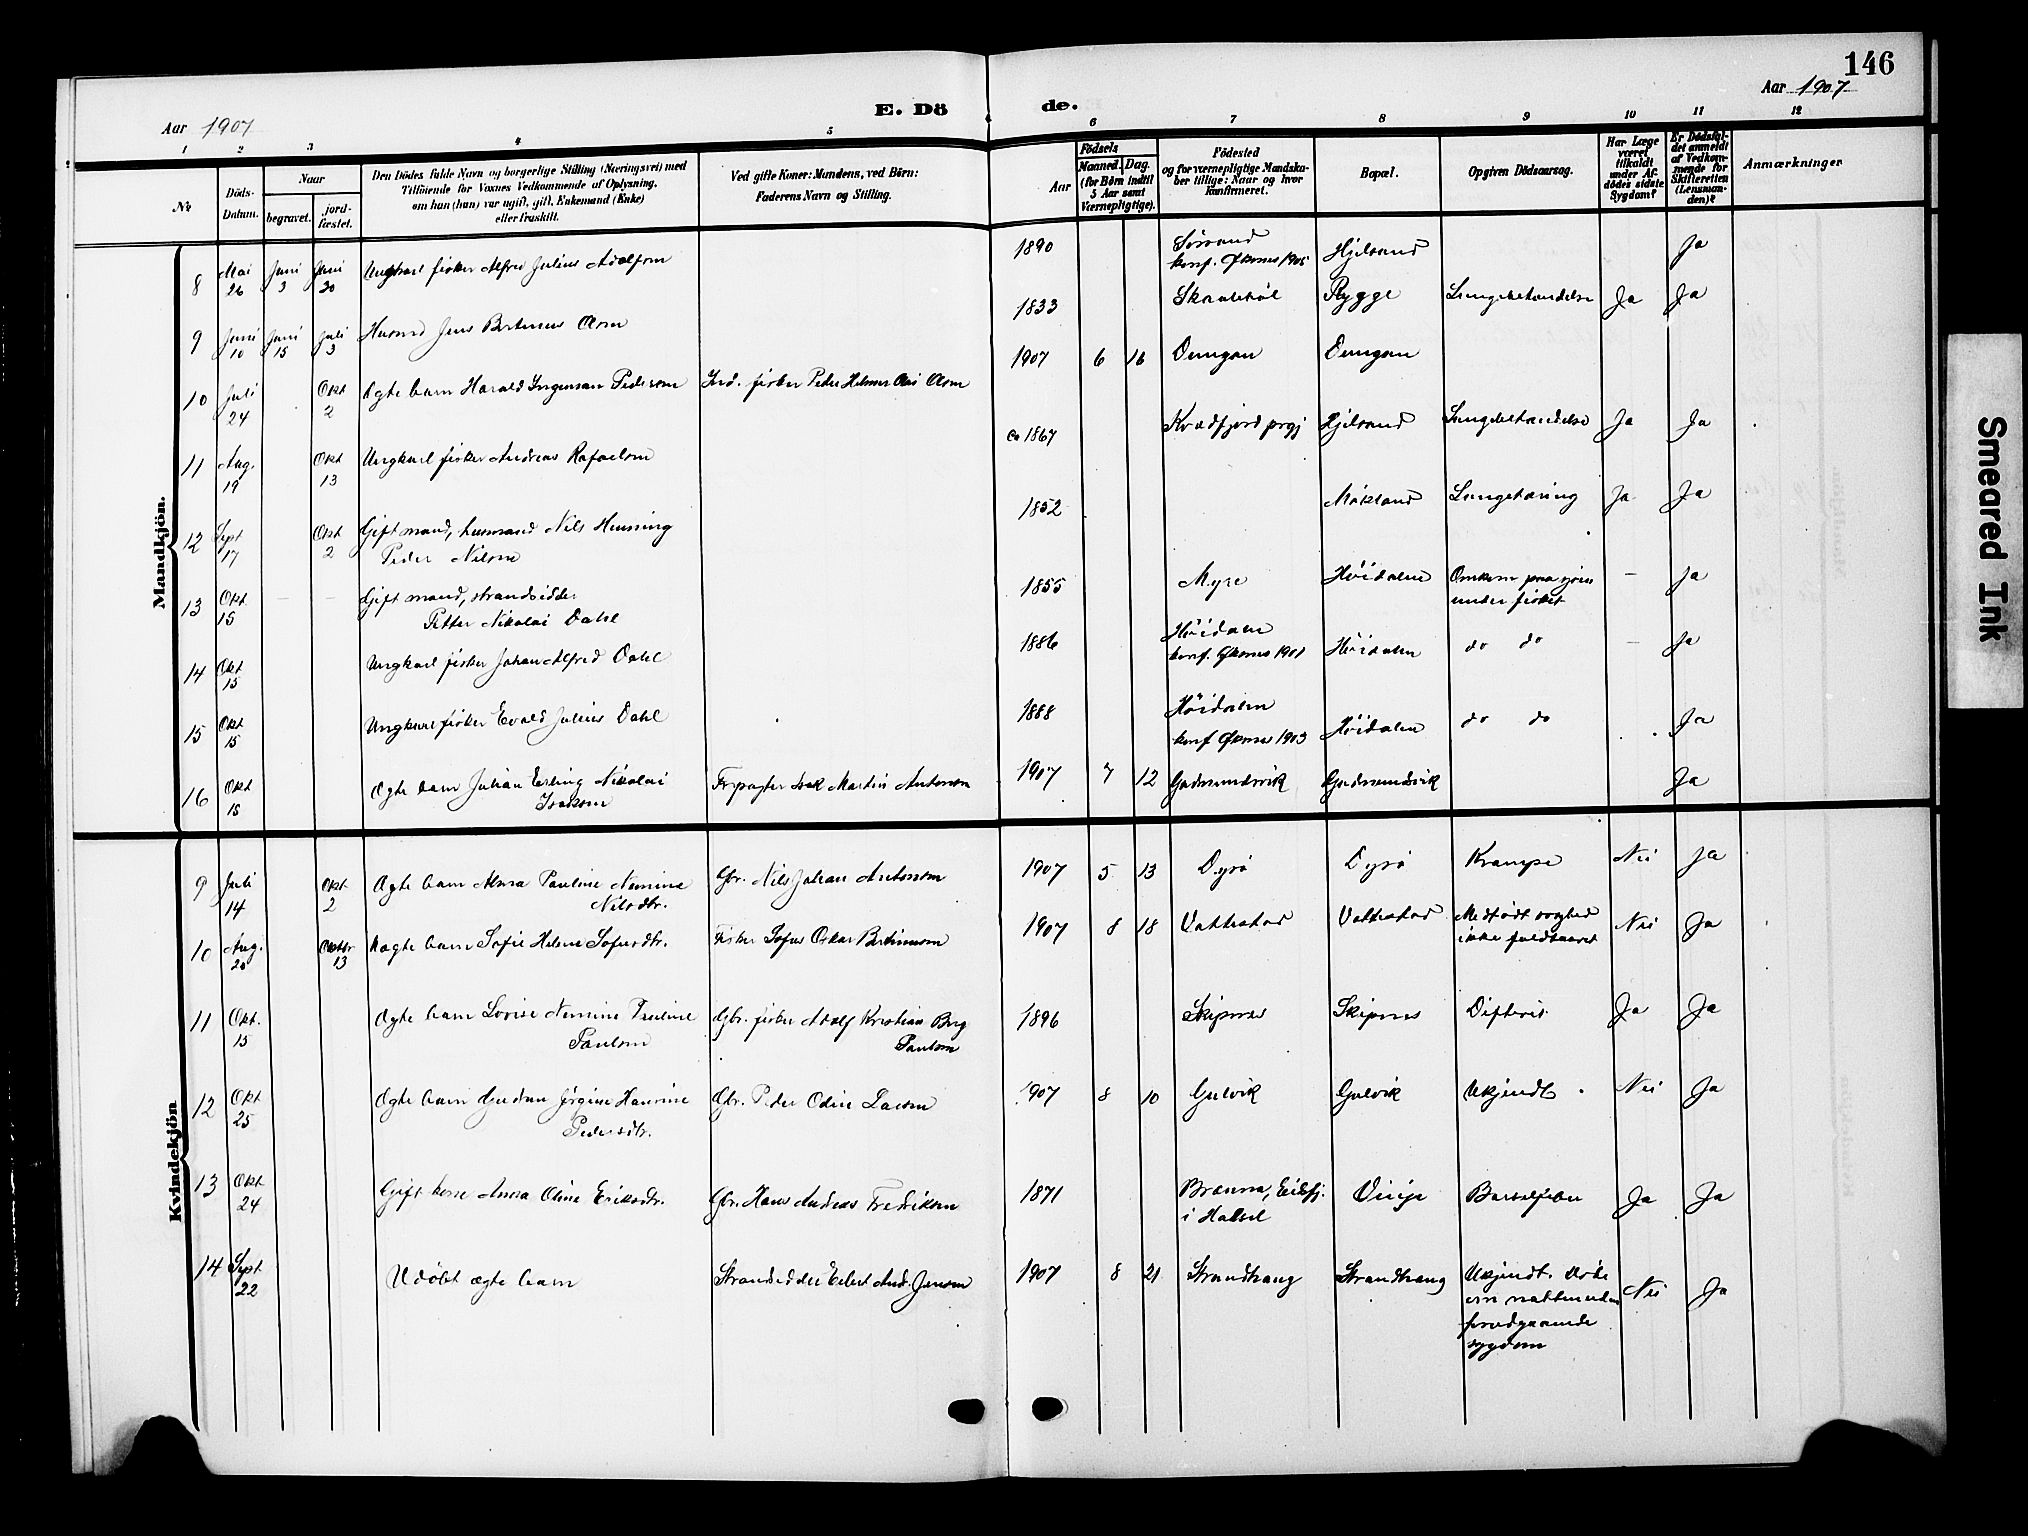 146
Aar 1907
E. Dö de.
Aar 1907
1 2 3 4 5 6 7 8 9 10 11 12
No
Döds-Datum.
Naar
begravet.
jord-fæstet.
Den Dödes fulde Navn og borgerlige Stilling (Næringsvei) med
Tilföiende for Voxnes Vedkommende af Oplysning,
om han (hun) var ugift, gift, Enkemand (Enke)
eller fraskilt.
Ved gifte Koner: Mandens, ved Börn:
Faderens Navn og Stilling.
Födsels
Aar
Maaned. Dag.
(for Börn indtil
5 Aar samt
Værnepligtige).
Födested
og for værnepligtige Mandska-
ber tillige: Naar og hvor
konfirmeret.
Bopæl.
Opgiven Dödsaarsag.
Har Læge
været
tilkaldt
under Af-
dödes sidste
Sygdom?
Er Dödsfal-
det anmeldt
af Vedkom-
mende for
Skifteretten
(Lensman-
den)?
Anmærkninger
Mandkjön.
8 Mai 26 Juni 3 Juni 30 Ungkarl fisker Alfred Julius Adolfsen 1890 konf. Øksnes 1905 Hjelsand Ja
9 Juni 10 Juni 15 Juli 3 Husmd Jens Bertinus Olsen 1833 Rygge Lungebetændelse Ja Ja
10 Juli 24 Okt 2 Ægte barn Harald Ingeman Pedersen Ind. fisker Peder Helmer Olsen 1907 6 16 Dungan Dungan
11 Aug. 19 Okt 13 Ungkarl fisker Andreas Rafaelsen Ca 1867 Kvædfjord prgj Hjelsand Lungebetændelse Ja Ja
12 Sept 17 Okt 2 Gift mand, husmand Nils Henning
Peder Nilsen 1852 Mækland Lungetæring Ja Ja
13 Okt 15 — — Gift mand, strandsidder
Petter Nikolai Dahl 1855 Myre Höidalen Omkom paa sjöen
under fisket — Ja
14 Okt 15 Ungkarl fisker Johan Alfred Dahl 1886 Höidalen
konf. Øksnes 1901 Höidalen do do — Ja
15 Okt 15 Ungkarl fisker Evald Julius Dahl 1888 Höidalen
konf Øksnes 1903 Höidalen do do Ja
16 Okt 15 Ægte barn Julian Erling Nikolai
Isaksen Forpagter Isak Martin Antonsen 1907 7 12 Gudmundsvik Gudmundsvik Ja
Kvindekjön
9 Juli 14 Okt 2 Ægte barn Alma Pauline Nemine
Nilsdtr. Gbr. Nils Johan Antonsen 1907 5 13 Dyrö Dyrö Krampe Nei Ja
10 Aug. 20 Oktbr 13 Uægte barn Sofie Helene Sofusdtr. Fisker Sofus Oskar Bertinusen 1907 8 18 Vottestad Vottestad Medfödt svaghed
ikke fuldbaaret Nei Ja
11 Okt. 15 Ægte barn Lovise Nemine Pauline
Paulsen Gbr. fisker Adolf Kristian Berg
Paulsen 1896 Skipnes Skipnes Difterit Ja Ja
12 Okt 25 Ægte barn Gudrun Jörgine Hansine
Pedersdtr. Gbr. Peder Odin Larsen 1907 8 10 Gulvik Gulvik Ukjendt Nei Ja
13 Okt 24 Gift kone Anna Oline Eriksdtr. Gbr. Hans Andreas Fredriksen 1871 Brænna, Eidsfj.
i Hadsel Barselfeber Ja Ja
14 Sept 22 Udöbt ægte barn Strandsidder Edert And. Jensen 1907 8 21 Strandhaug Strandhaug Ukjendt. Döde
om natten uden
forudgaaende
sygdom Nei Ja
Smeared Ink